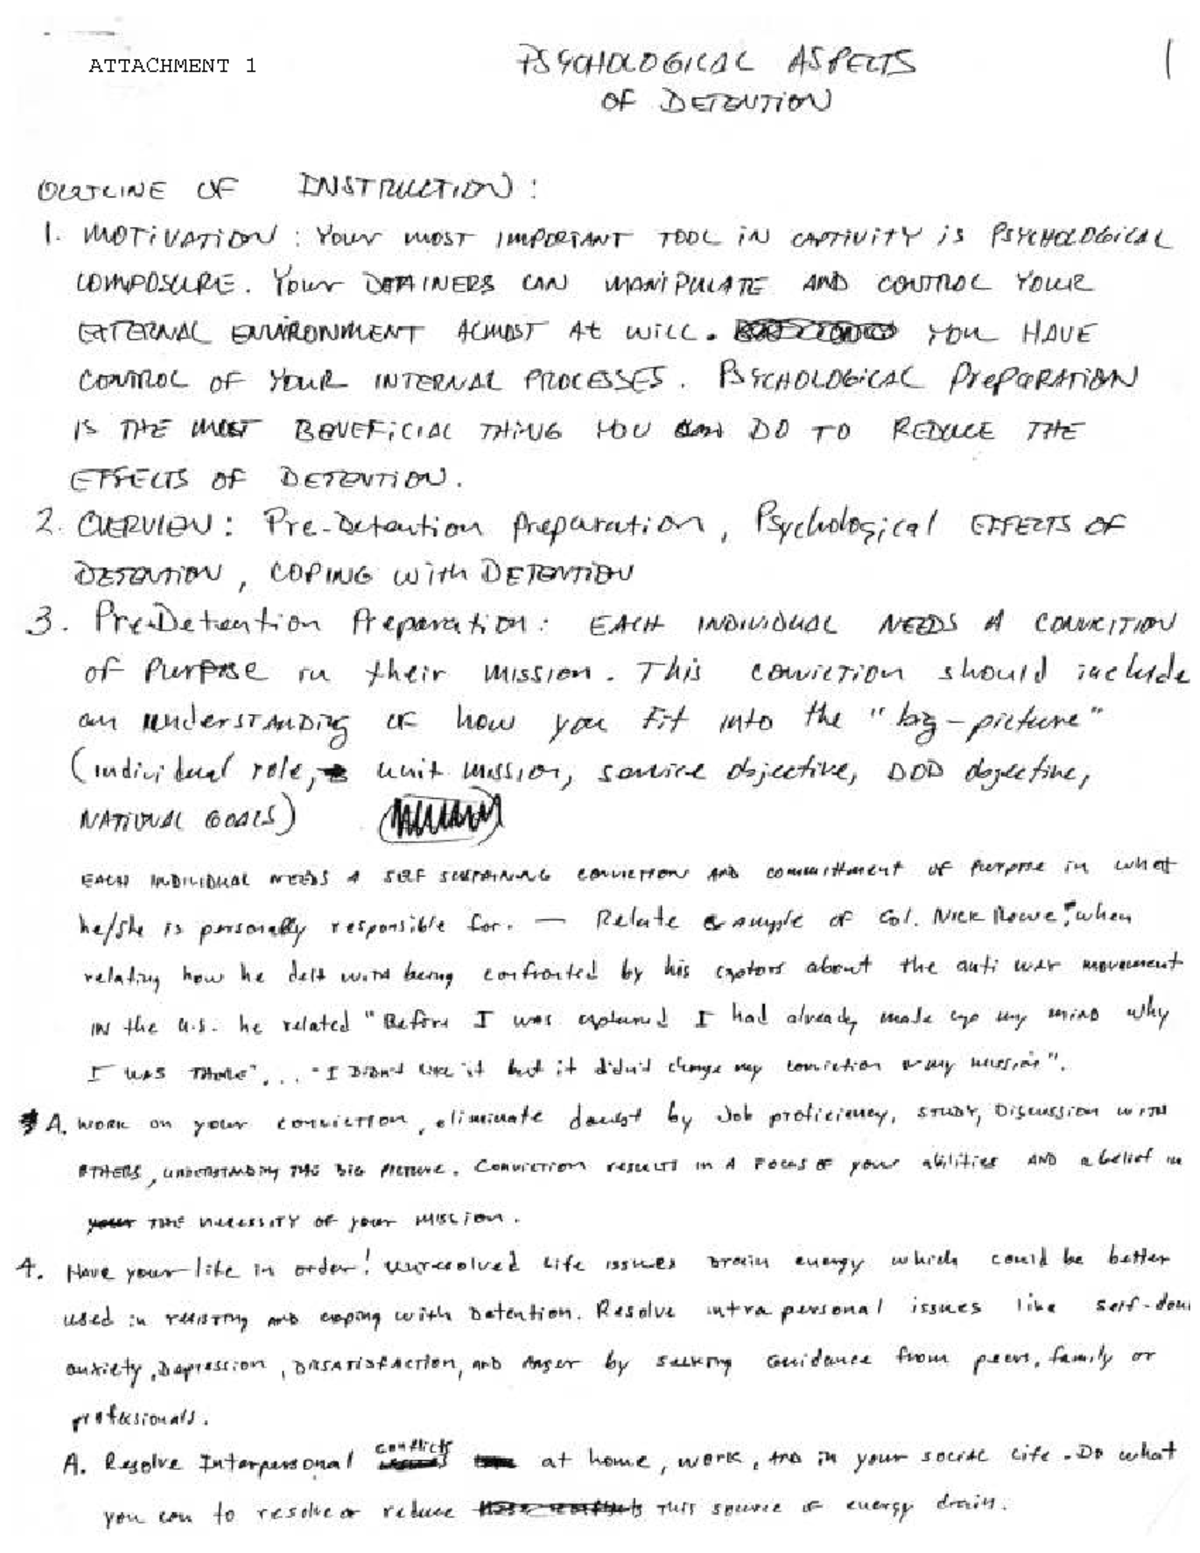 ATTACHMENT 1
PSYCHOLOGICAL ASPECTS
OF DETENTION
1
OUTLINE OF INSTRUCTION:
1. MOTIVATION: Your MOST IMPORTANT TOOL IN CAPTIVITY is PSYCHOLOGICAL
COMPOSURE. Your DETAINERS CAN MANIPULATE AND CONTROL YOUR
EXTERNAL ENVIRONMENT ALMOST AT WILL. YOU HAVE
CONTROL OF YOUR INTERNAL PROCESSES. PSYCHOLOGICAL PrePARATION
IS THE MOST BENEFICIAL THING YOU CAN DO TO REDUCE THE
EFFECTS OF DETENTION.
2. OVERVIEW: Pre-Detention Preparation, Psychological EFFECTS OF
DETENTION, COPING with DETENTION
3. Pre-Detention Preparation: EACH INDIVIDUAL NEEDS A CONVICTION
of Purpose in their mission. This conviction should include
an understanding of how you Fit into the "big-picture"
(individual role, unit mission, service objective, DOD objective,
NATIONAL GOALS)
EACH INDIVIDUAL NEEDS A SELF SUSTAINING CONVICTION AND committment of Purpose in what
he/she is personally responsible for. — Relate example of Col. NICK Rowe when
relating how he delt with being confronted by his captors about the anti war movement
IN the U.S. he related "Before I was captured I had already made up my mind why
I WAS THERE"... "I DIDN'T like it but it didn't change my conviction or my mission".
A. WORK on your conviction, eliminate doubt by Job proficiency, STUDY, Discussion with
OTHERS, UNDERSTANDING THE BIG PICTURE. Conviction results in A FOCUS OF your abilities AND a belief in
THE necessity of your mission.
4. Have your life in order! Unresolved life issues Drain energy which could be better
used in resisting and coping with Detention. Resolve intrapersonal issues like self-dou
anxiety, Depression, DISSATISFACTION, AND Anger by seeking Guidance from peers, family or
professionals.
A. Resolve Interpersonal conflicts at home, work, and in your social life. Do what
you can to resolve or reduce THIS source of energy drain.